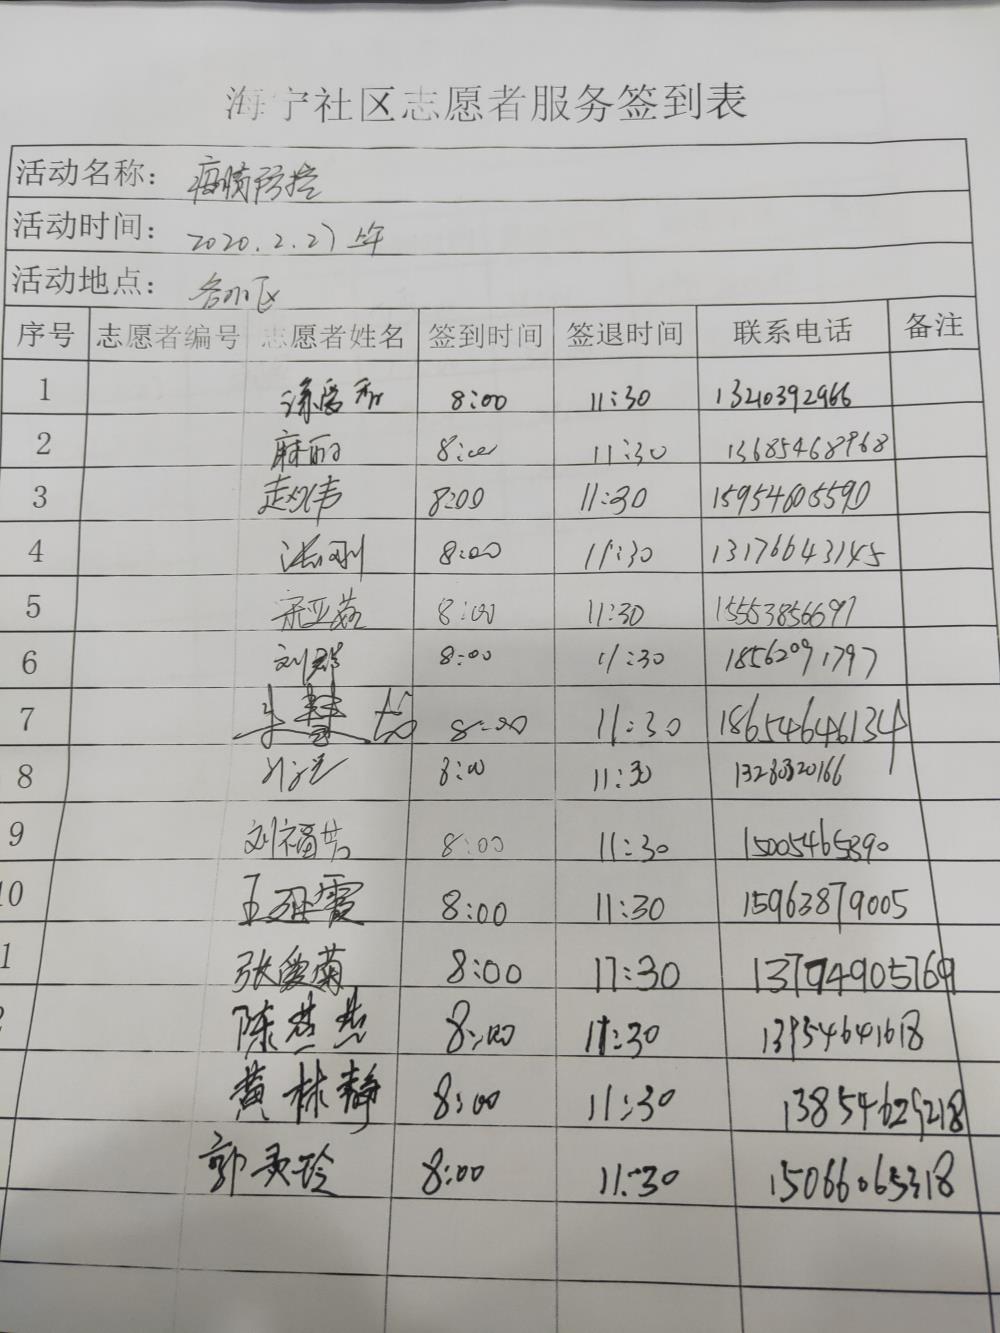 海宁社区志愿者服务签到表
活动名称：疫情防控
活动时间：2020.2.27 上午
活动地点：各小区
序号 志愿者编号 志愿者姓名 签到时间 签退时间 联系电话 备注
1 8:00 11:30 13210392966
2 麻丽 8:00 11:30 13685468968
3 8:00 11:30 15954605590
4 8:00 11:30 13176643145
5 宋亚茹 8:00 11:30 15553856697
6 刘群 8:00 11:30 18562091797
7 8:00 11:30 18654646134
8 8:00 11:30 13280320166
9 刘福芸 8:00 11:30 15005465390
10 8:00 11:30 15963879005
1 张爱菊 8:00 11:30 13794905769
陈燕燕 8:00 11:30 13954641618
黄林静 8:00 11:30 13854629218
郭灵玲 8:00 11:30 15066065318